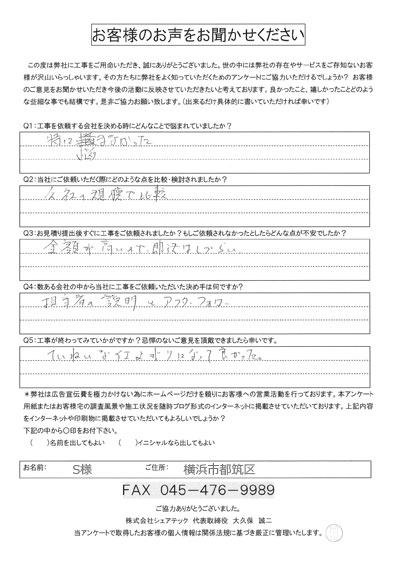 お客様のお声をお聞かせください
この度は弊社に工事をご用命いただき、誠にありがとうございました。世の中には弊社の存在やサービスをご存知ないお客
様が沢山いらっしゃいます。その方たちに弊社をよく知っていただくためのアンケートにご協力いただけるでしょうか？ お客様
のご意見をお聞かせいただき今後の活動に反映させていただきたいと考えております。良かったこと、嬉しかったことどのよう
な些細な事でも結構です。是非ご協力お願い致します。（出来るだけ具体的に書いていただければ幸いです）
Q1：工事を依頼する会社を決める時にどんなことで悩まれていましたか？
特に悩まなかった
Q2：当社にご依頼いただく際にどのような点を比較・検討されましたか？
会社の規模で比較
Q3：お見積り提出後すぐに工事をご依頼されましたか？もしご依頼されなかったとしたらどんな点が不安でしたか？
金額が高いので、即決はしづらい
Q4：数ある会社の中から当社に工事をご依頼いただいた決め手は何ですか？
担当者の説明とアフターフォロー
Q5：工事が終わってみていかがですか？忌憚のないご意見を頂戴できましたら幸いです。
ていねいな仕上がりになって良かった。
＊弊社は広告宣伝費を極力かけない為にホームページだけを頼りにお客様への営業活動を行っております。本アンケート
用紙またはお客様宅の調査風景や施工状況を随時ブログ形式のインターネットに掲載させていただいております。上記内容
をインターネットや印刷物に掲載させていただいてもよろしいでしょうか？
下記の中から〇印をお付け下さい。
（　　）名前を出してもよい　（　　）イニシャルなら出してもよい
お名前： S様 ご住所： 横浜市都筑区
FAX 045-476-9989
ご協力ありがとうございました。
株式会社シェアテック 代表取締役 大久保 誠二
当アンケートで取得したお客様の個人情報は関係法規に基づき厳正に管理いたします。